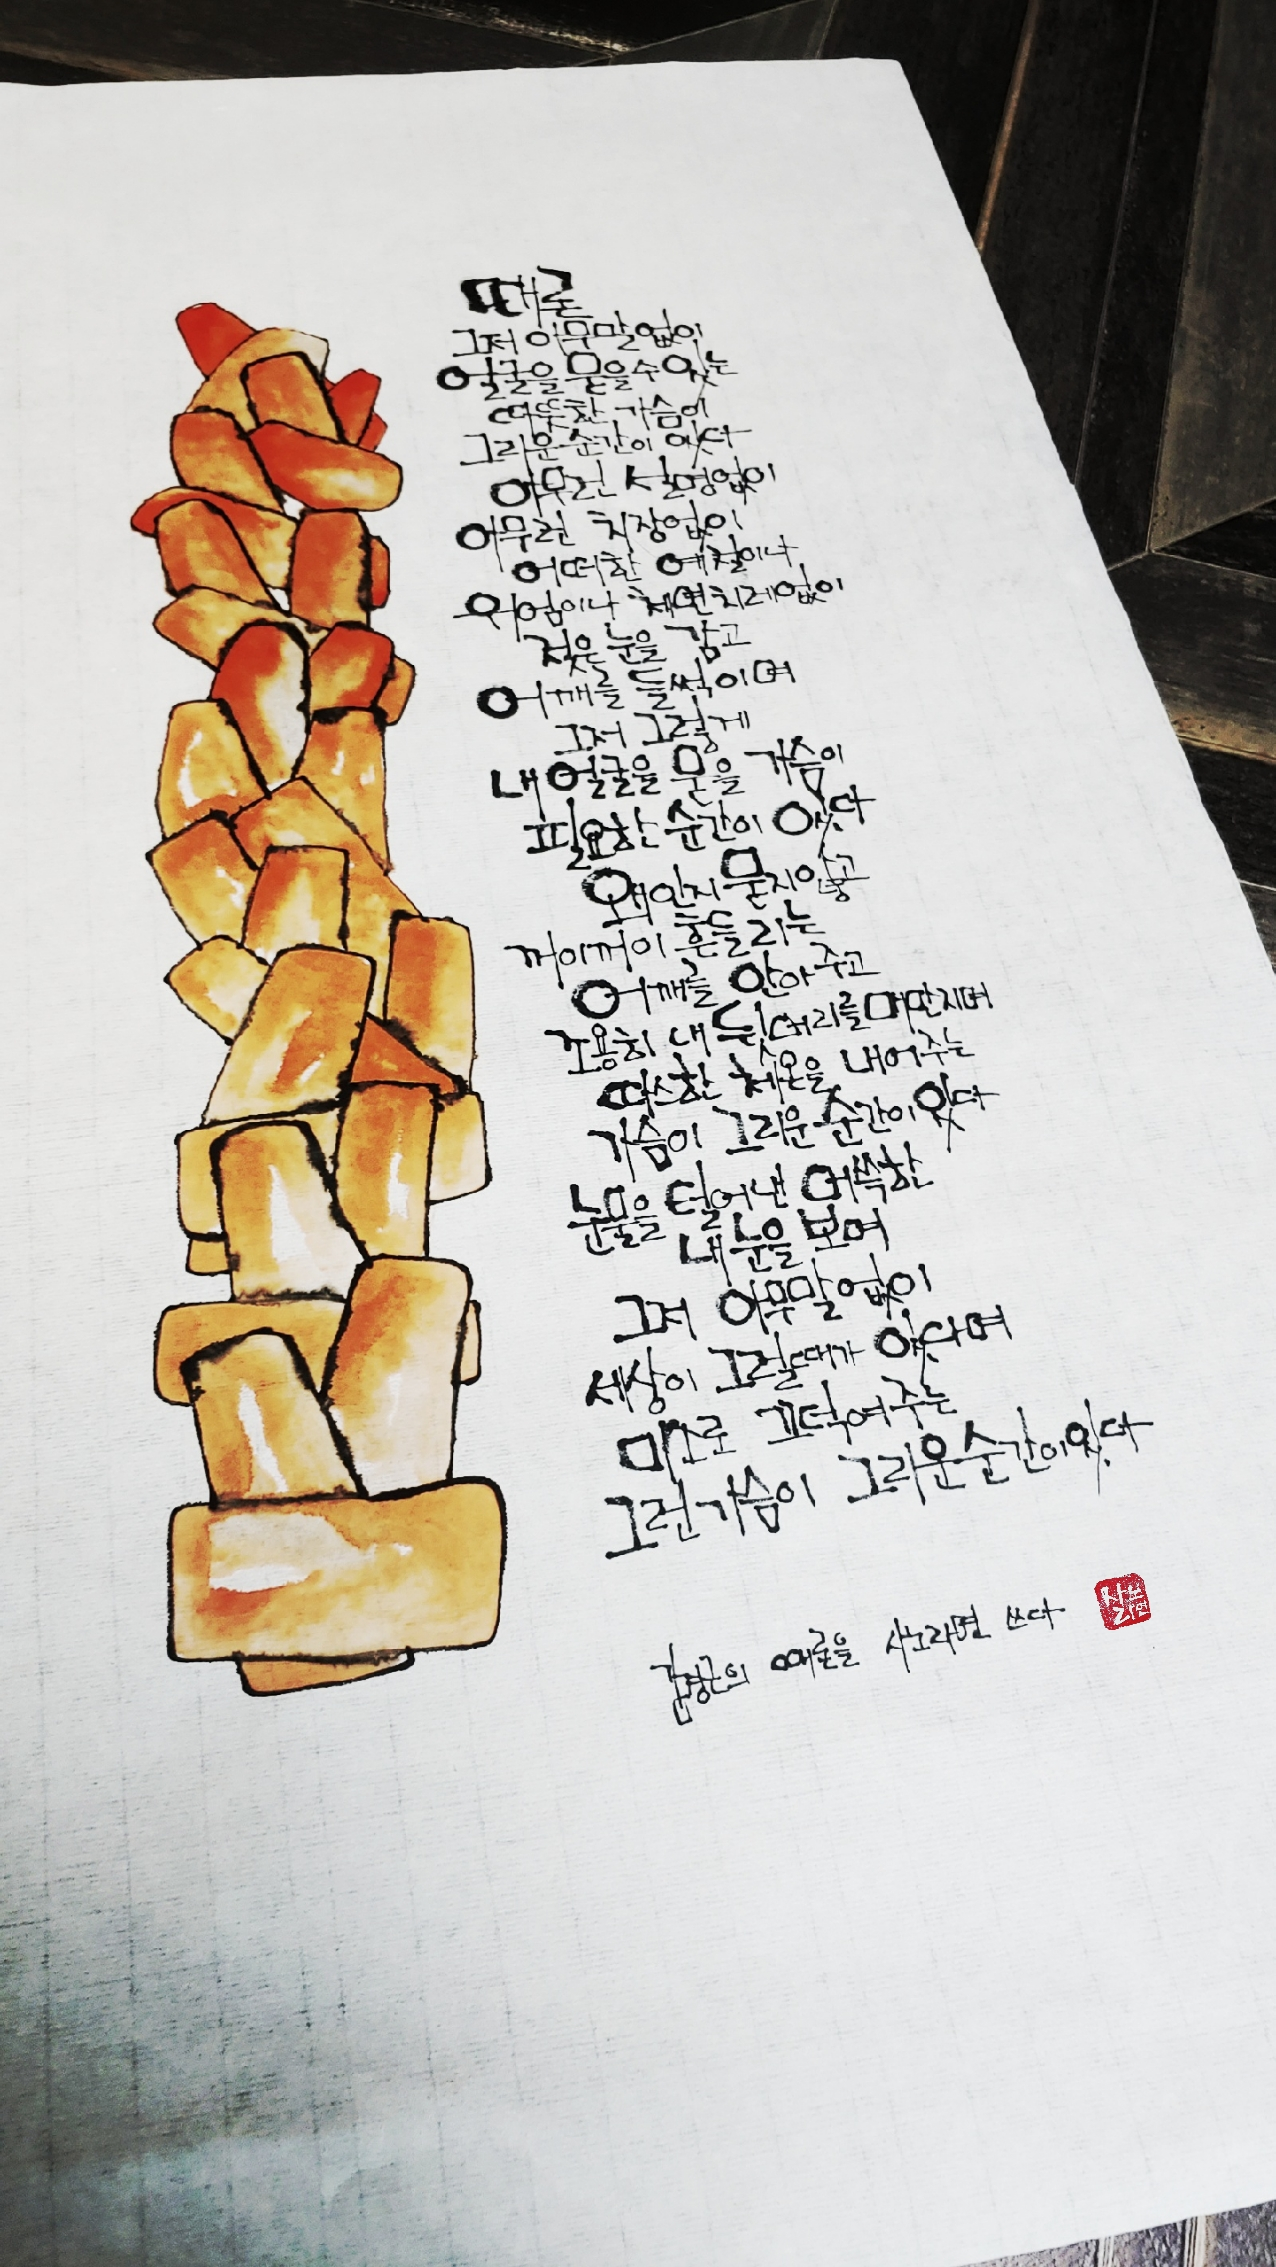 때론
그저 아무말없이
얼굴을 묻을수 있는
따뜻한 가슴이
그리운 순간이 있다
아무런 설명없이
아무런 치장없이
어떠한 예절이나
위엄이나 체면치레없이
젖은 눈을 감고
어깨를 들썩이며
그저 그렇게
내 얼굴을 묻을 가슴이
필요한 순간이 있다
왜인지 묻지않고
꺼이꺼이 흔들리는
어깨를 안아 주고
조용히 내 뒷머리를 매만지며
따스한 체온을 내어주는
가슴이 그리운 순간이 있다
눈물을 털어낸 머쓱한
내 눈을 보며
그저 아무말 없이
세상이 그럴때가 있다며
미소로 끄덕여 주는
그런 가슴이 그리운 순간이 있다
때론을 사노라면 쓰다